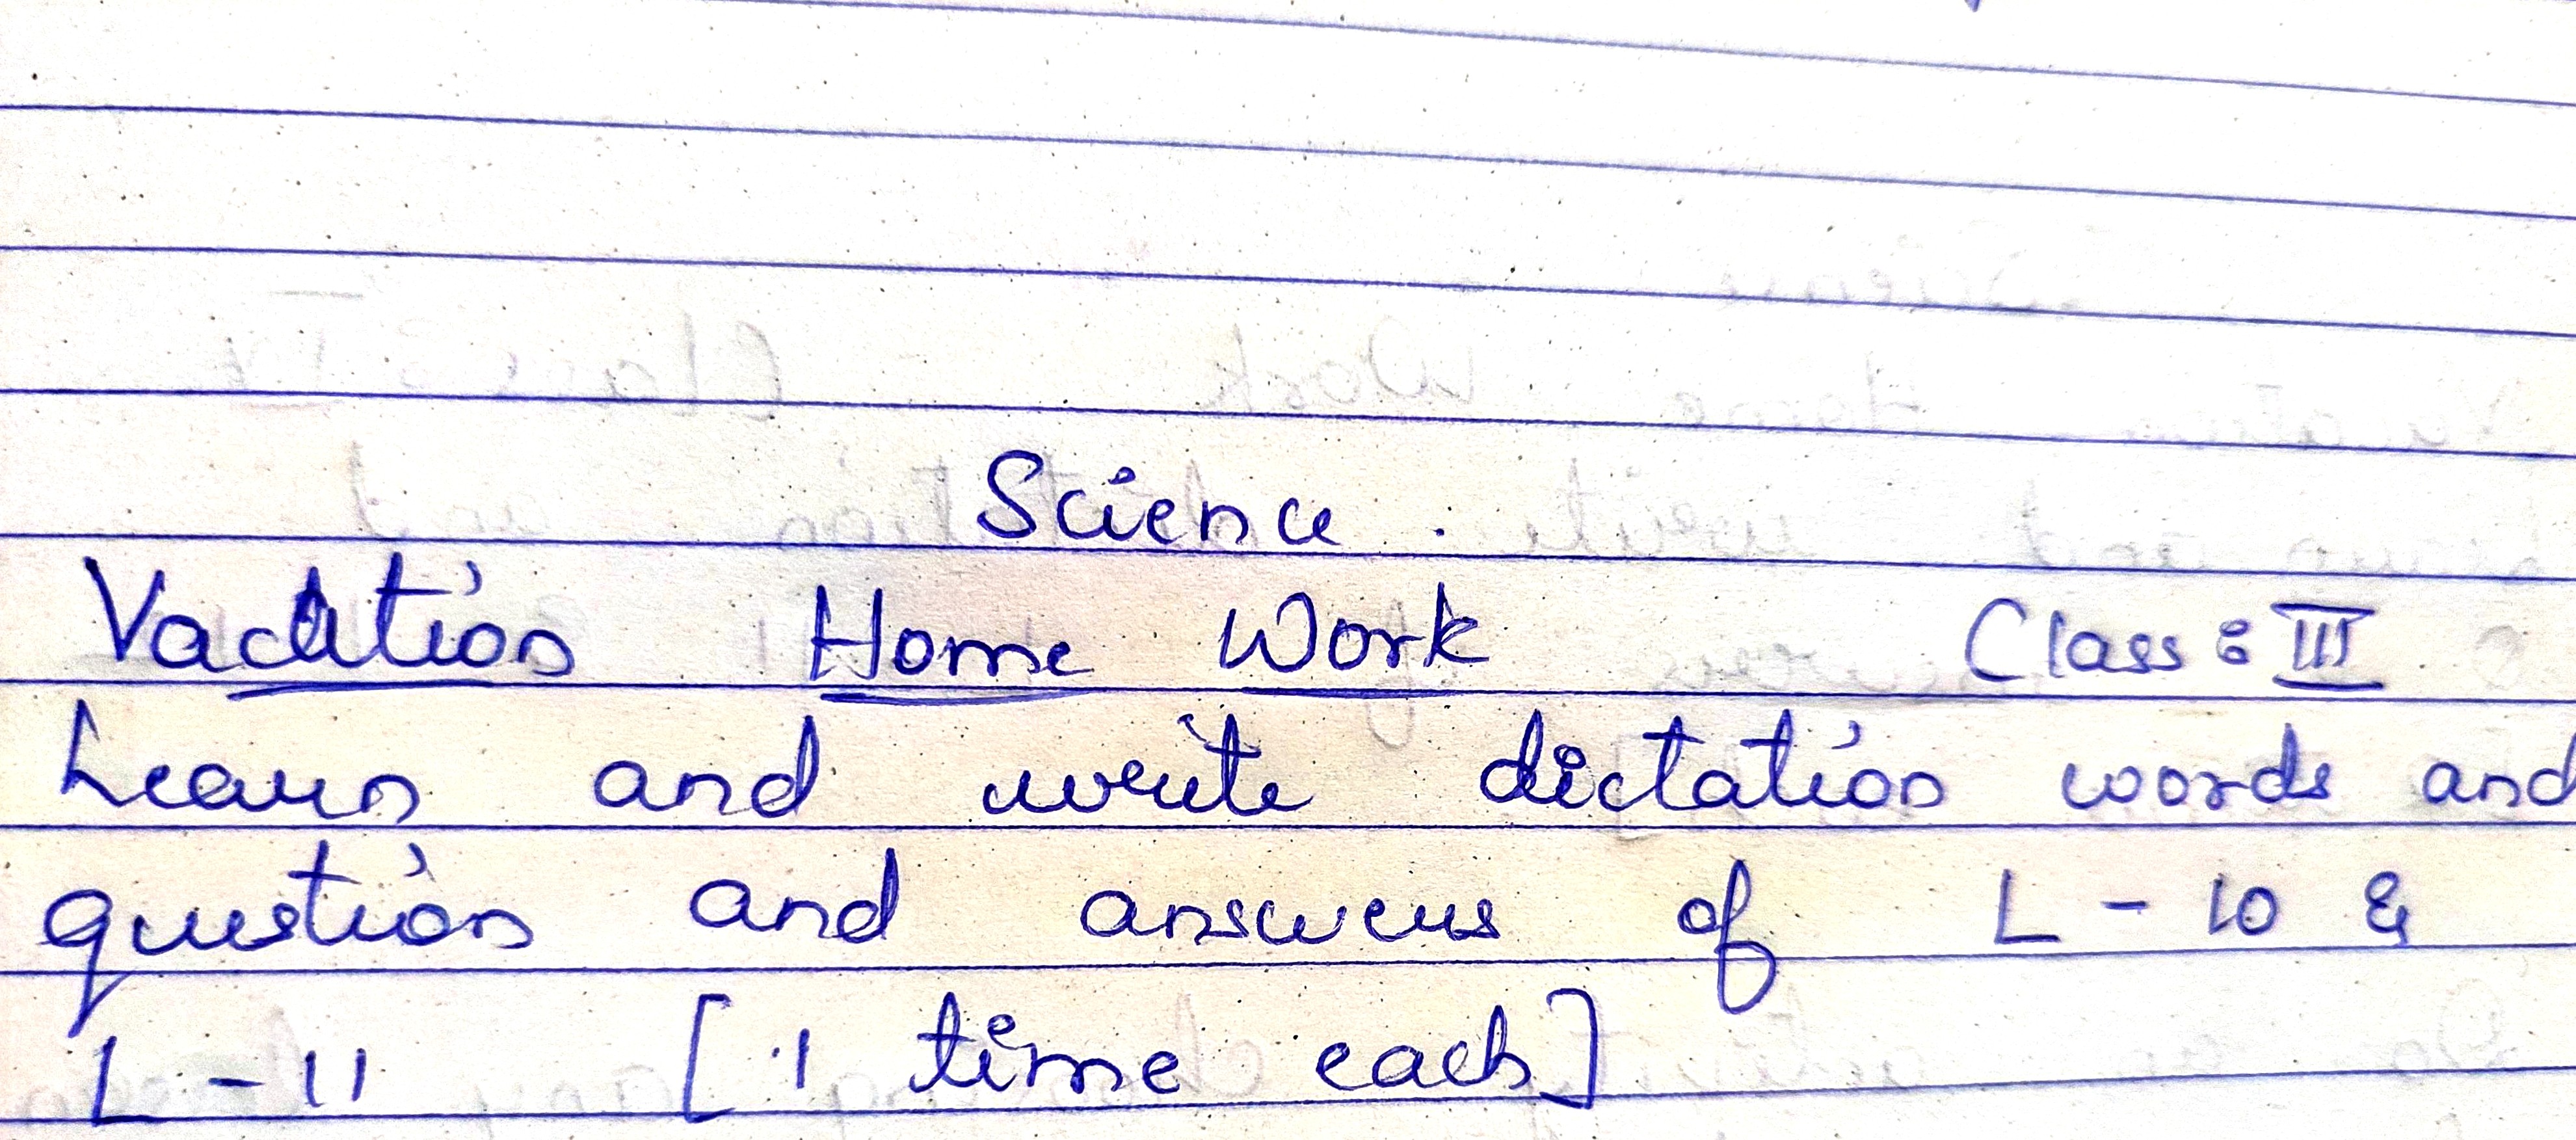 Science.
Vacation Home Work Class: III
Learn and write dictation words and
question and answers of L - 10 &
L - 11 [1 time each]